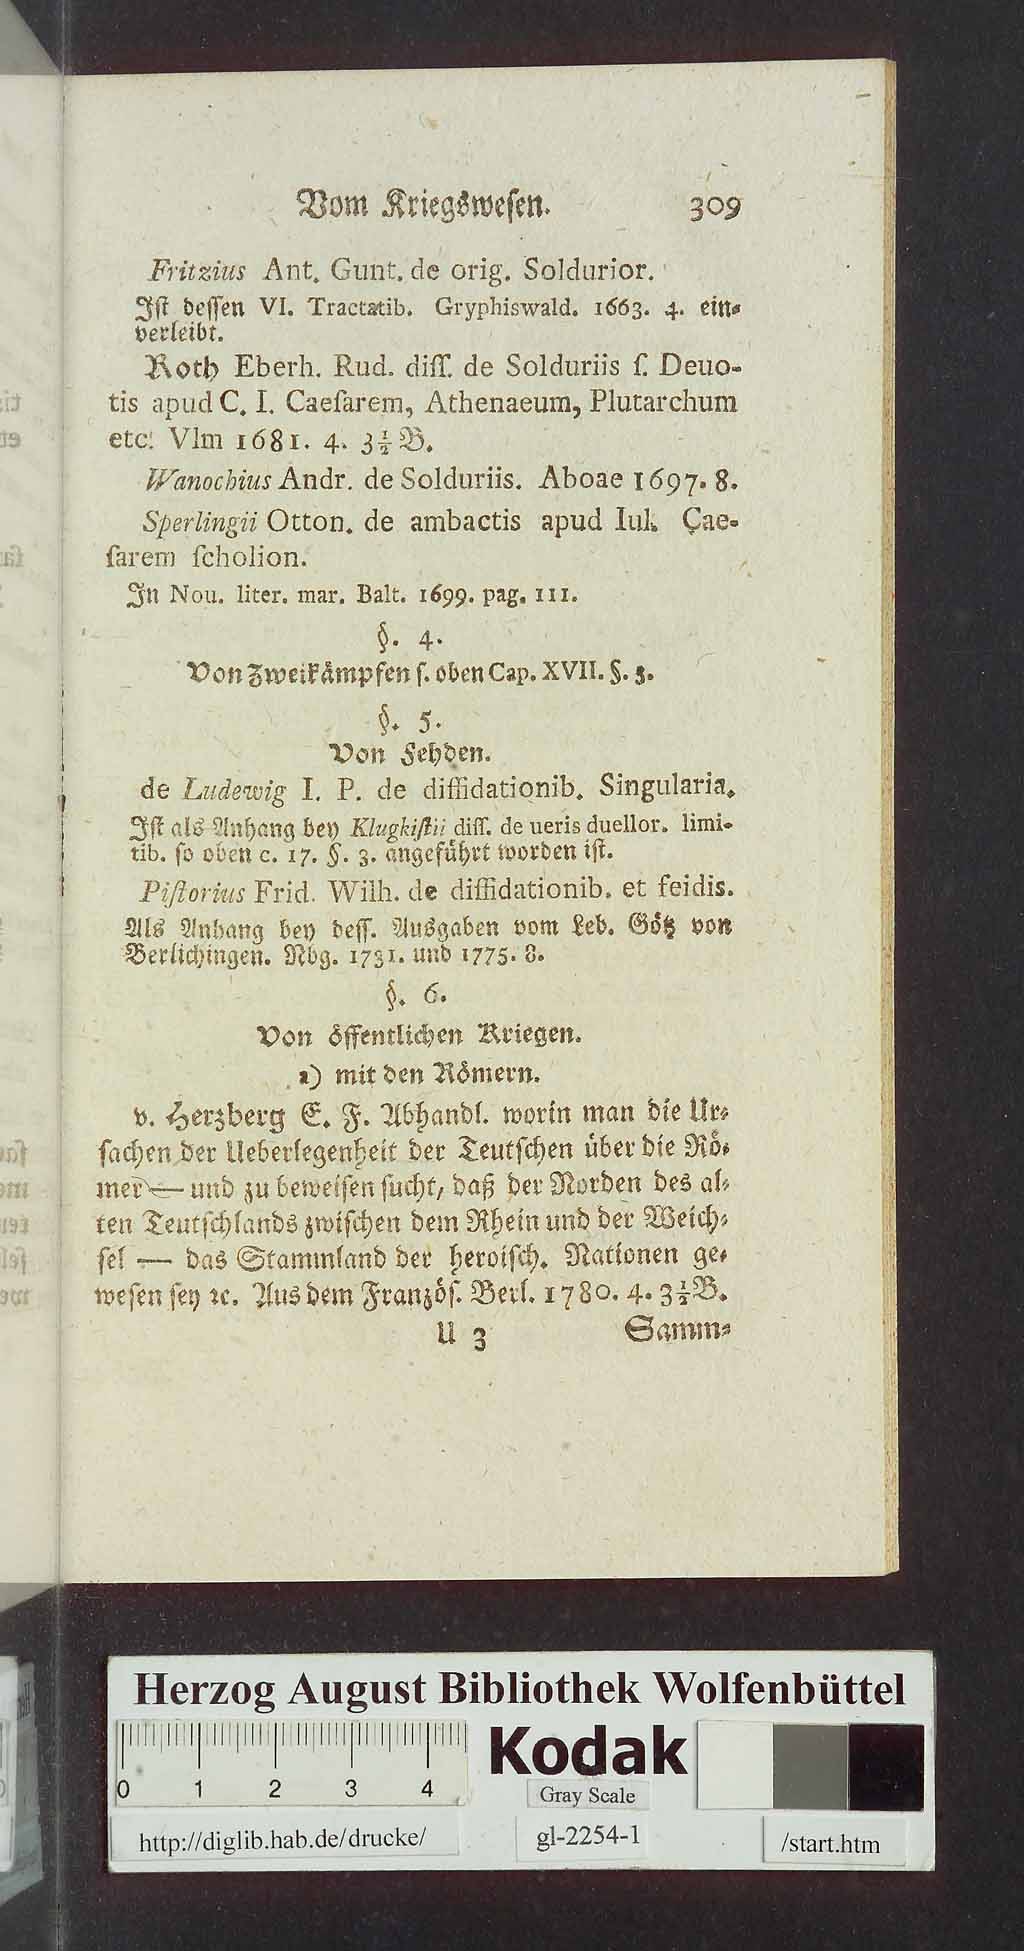 Vom Kriegswesen. 309
Fritzius Ant. Gunt. de orig. Soldurior.
Iſt deſſen VI. Tractatib. Gryphiswald. 1663. 4. ein-
verleibt.
Roth Eberh. Rud. diſſ. de Solduriis ſ. Deuo-
tis apud C. I. Caeſarem, Athenaeum, Plutarchum
etc. Vlm 1681. 4. 3½ B.
Wanochius Andr. de Solduriis. Aboae 1697. 8.
Sperlingii Otton. de ambactis apud Iul. Cae-
ſarem ſcholion.
In Nou. liter. mar. Balt. 1699. pag. 111.
§. 4.
Von Zweikämpfen ſ. oben Cap. XVII. §. 3.
§. 5.
Von Fehden.
de Ludewig I. P. de diffidationib. Singularia.
Iſt als Anhang bey Klugkiſtii diſſ. de ueris duellor. limi-
tib. ſo oben c. 17. §. 3. angeführt worden iſt.
Piſtorius Frid. Wilh. de diffidationib. et feidis.
Als Anhang bey deſſ. Ausgaben vom Leb. Götz von
Berlichingen. Nbg. 1731. und 1775. 8.
§. 6.
Von öffentlichen Kriegen.
a) mit den Römern.
v. Herzberg E. F. Abhandl. worin man die Ur-
ſachen der Ueberlegenheit der Teutſchen über die Rö-
mer — und zu beweiſen ſucht, daß der Norden des al-
ten Teutſchlands zwiſchen dem Rhein und der Weich-
ſel — das Stammland der heroiſch. Nationen ge-
weſen ſey ꝛc. Aus dem Französ. Berl. 1780. 4. 3½ B.
U 3 Samm-
Herzog August Bibliothek Wolfenbüttel
Kodak
0 1 2 3 4
Gray Scale
http://diglib.hab.de/drucke/
gl-2254-1
/start.htm